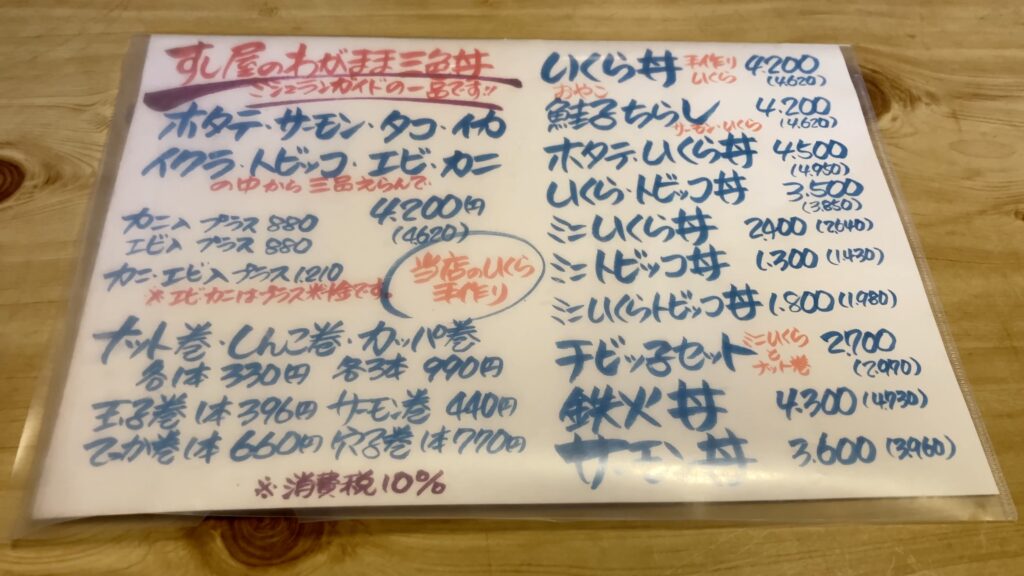 すし屋のわがまま三色丼
ミシュランガイドの一品です!!
ホタテ・サーモン・タコ・イカ
イクラ・トビッコ・エビ・カニ
の中から三品えらんで
4.200円
(4.620)
カニ入 プラス 880
エビ入 プラス 880
カニ・エビ入プラス1.210
※エビカニはプラス料金です。
当店のいくら
手作り
ナット巻・しんこ巻・カッパ巻
各1本 330円 各3本 990円
玉子巻 1本 396円 サーモン巻 440円
てっか巻 1本 660円 穴子巻 1本 770円
※消費税10%
いくら丼 手作りいくら 4.200
(4.620)
おやこ
鮭子ちらし 4.200
サーモン・いくら (4.620)
ホタテ・いくら丼 4.500
(4.950)
いくら・トビッコ丼 3.500
(3.850)
ミニいくら丼 2.400 (2.640)
ミニトビッコ丼 1.300 (1.430)
ミニいくらトビッコ丼 1.800 (1.980)
チビッ子セット ミニいくらとナット巻 2.700
(2.970)
鉄火丼 4.300 (4.730)
サーモン丼 3.600 (3.960)